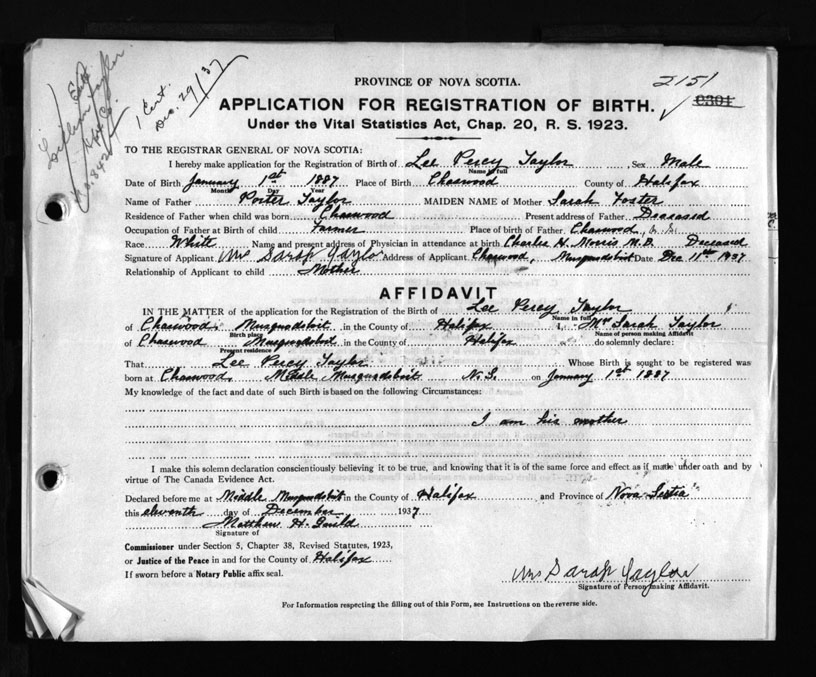 PROVINCE OF NOVA SCOTIA.
2151
APPLICATION FOR REGISTRATION OF BIRTH.
Under the Vital Statistics Act, Chap. 20, R. S. 1923.
1 Cert.
Dec. 29/37
TO THE REGISTRAR GENERAL OF NOVA SCOTIA:
I hereby make application for the Registration of Birth of Lee Percy Taylor Sex Male
Name in full
Date of Birth January 1st 1887 Place of Birth Chaswood County of Halifax
Month Day Year
Name of Father Porter Taylor MAIDEN NAME of Mother Sarah Foster
Residence of Father when child was born Chaswood Present address of Father Deceased
Occupation of Father at Birth of child Farmer Place of birth of Father Chaswood, N. S.
Race White Name and present address of Physician in attendance at birth Charles H. Morris M.D. Deceased
Signature of Applicant Mrs Sarah Taylor Address of Applicant Chaswood, Musquodoboit Date Dec 11th 1937
Relationship of Applicant to child Mother
AFFIDAVIT
IN THE MATTER of the application for the Registration of the Birth of Lee Percy Taylor
Name in full
of Chaswood, Musquodoboit in the County of Halifax I, Mrs Sarah Taylor
Birth place Name of person making Affidavit
of Chaswood Musquodoboit in the County of Halifax do solemnly declare:
Present residence
That Lee Percy Taylor Whose Birth is sought to be registered was
born at Chaswood, Middle Musquodoboit N.S. on January 1st 1887
My knowledge of the fact and date of such Birth is based on the following Circumstances:
I am his mother
I make this solemn declaration conscientiously believing it to be true, and knowing that it is of the same force and effect as if made under oath and by
virtue of The Canada Evidence Act.
Declared before me at Middle Musquodoboit in the County of Halifax and Province of Nova Scotia
this eleventh day of December 1937
Matthew H. Guild
Signature of
Commissioner under Section 5, Chapter 38, Revised Statutes, 1923,
or Justice of the Peace in and for the County of Halifax
If sworn before a Notary Public affix seal.
Mrs Sarah Taylor
Signature of Person making Affidavit.
For Information respecting the filling out of this Form, see Instructions on the reverse side.